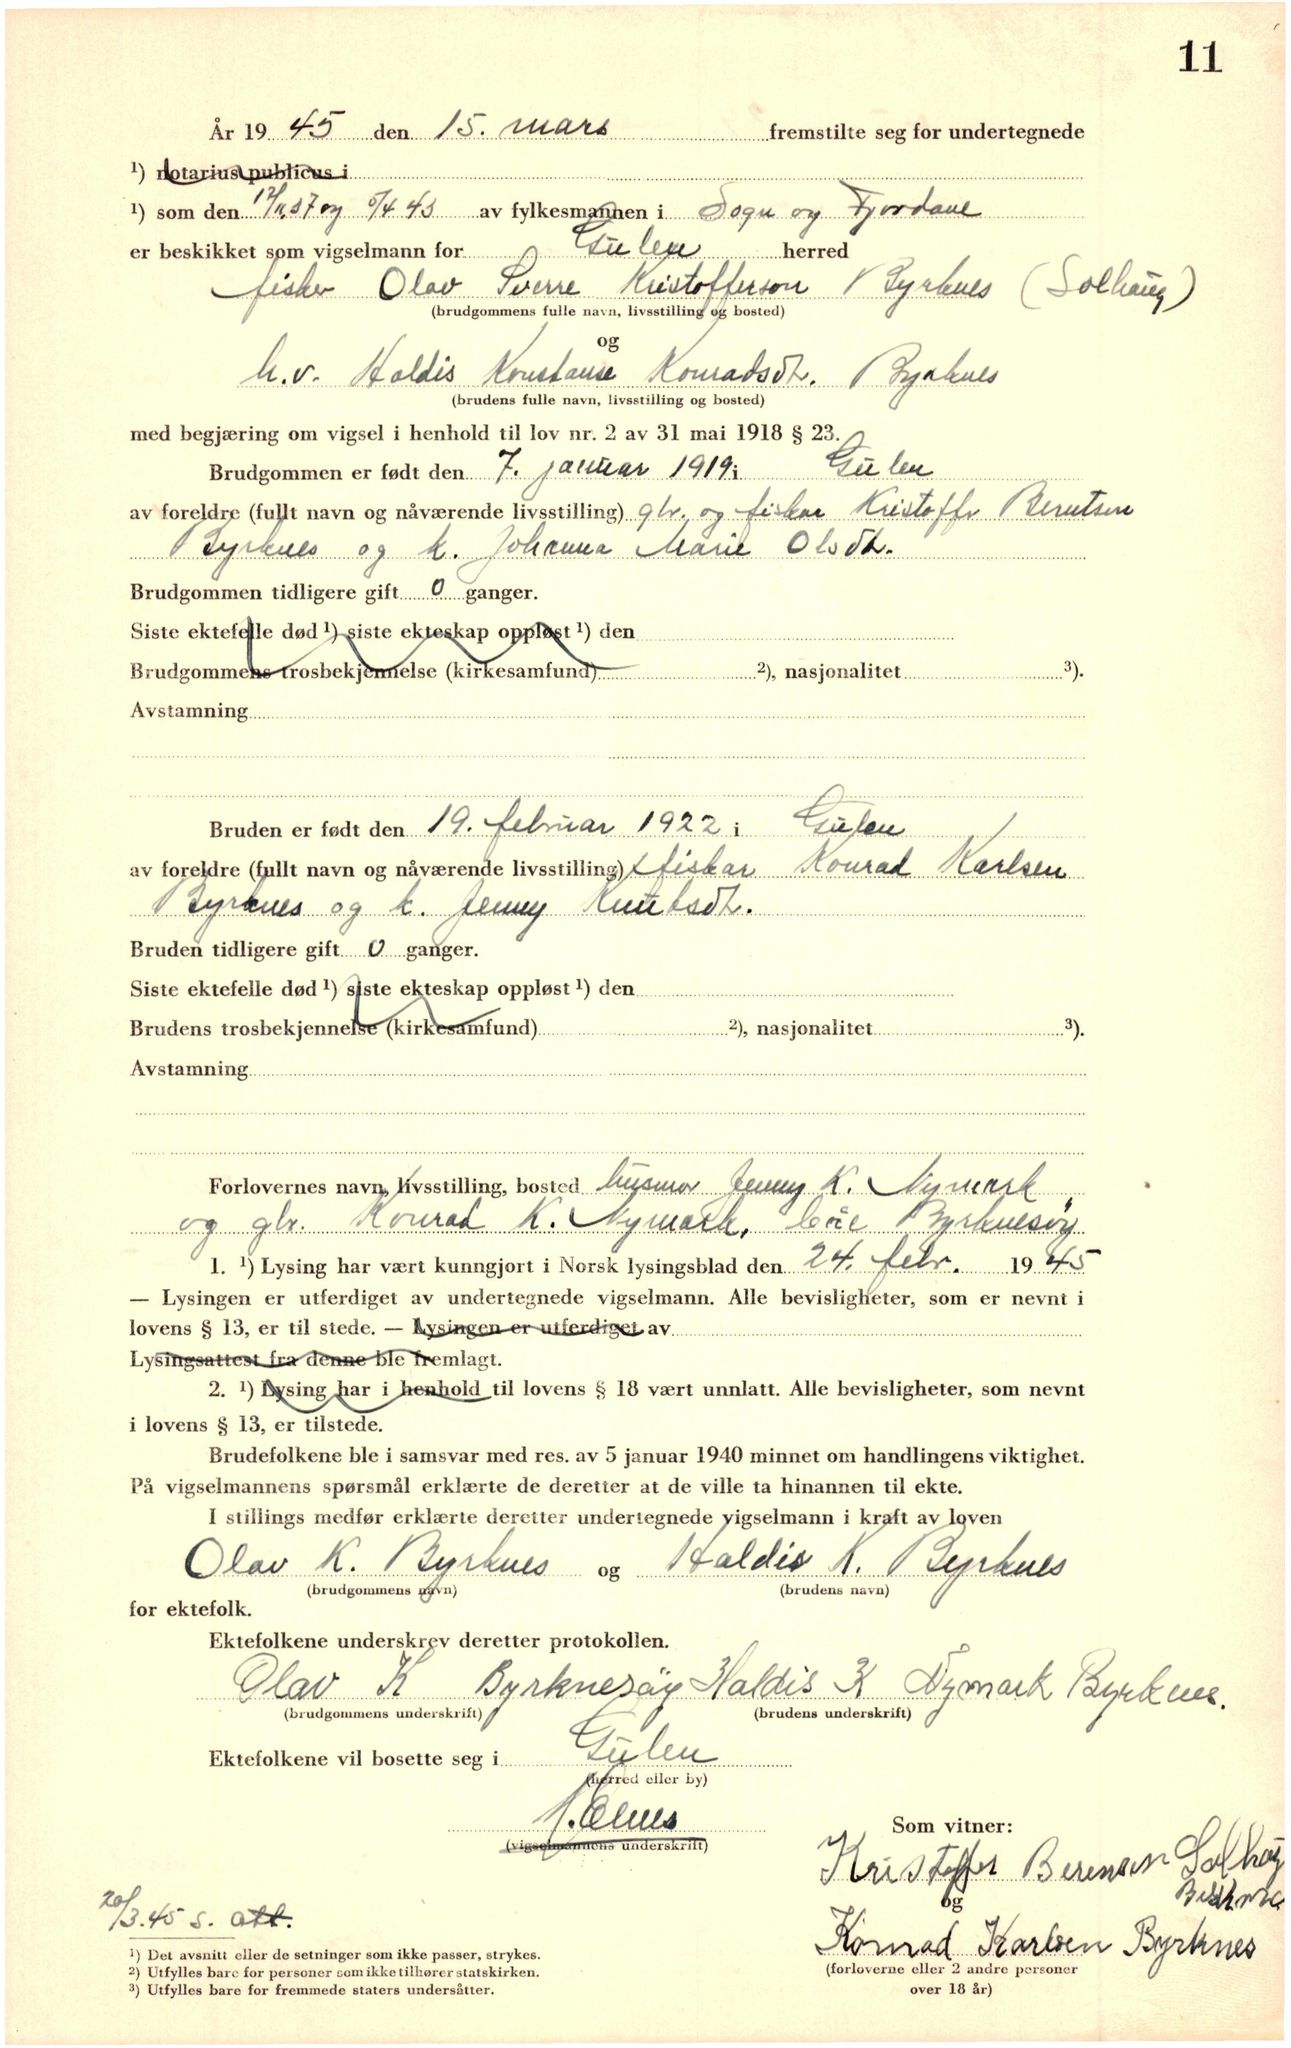 11
År 19 45 den 15. mars fremstilte seg for undertegnede
¹) notarius publicus i
¹) som den 12/11 37 og 5/4 43 av fylkesmannen i Sogn og Fjordane
er beskikket som vigselmann for Gulen herred
fisker Olav Sverre Kristofferson Byrknes (Solhaug)
(brudgommens fulle navn, livsstilling og bosted)
og
h.v. Haldis Konstanse Konradsdt. Byrknes
(brudens fulle navn, livsstilling og bosted)
med begjæring om vigsel i henhold til lov nr. 2 av 31 mai 1918 § 23.
Brudgommen er født den 7. januar 1919 i Gulen
av foreldre (fullt navn og nåværende livsstilling) gbr. og fiskar Kristoffr Berntsen
Byrknes og k. Johanna Marie Olsdt.
Brudgommen tidligere gift 0 ganger.
Siste ektefelle død ¹) siste ekteskap oppløst ¹) den
Brudgommens trosbekjennelse (kirkesamfund) ²), nasjonalitet ³).
Avstamning
Bruden er født den 19. februar 1922 i Gulen
av foreldre (fullt navn og nåværende livsstilling) fiskar Konrad Karlsen
Byrknes og k. Jenny Knutsdt.
Bruden tidligere gift 0 ganger.
Siste ektefelle død ¹) siste ekteskap oppløst ¹) den
Brudens trosbekjennelse (kirkesamfund) ²), nasjonalitet ³).
Avstamning
Forlovernes navn, livsstilling, bosted husmor Jenny K. Nymark
og gbr. Konrad K. Nymark, båe Byrknesøy
1. ¹) Lysing har vært kunngjort i Norsk lysingsblad den 24. febr. 19 45
— Lysingen er utferdiget av undertegnede vigselmann. Alle bevisligheter, som er nevnt i
lovens § 13, er til stede. — Lysingen er utferdiget av
Lysingsattest fra denne ble fremlagt.
2. ¹) Lysing har i henhold til lovens § 18 vært unnlatt. Alle bevisligheter, som nevnt
i lovens § 13, er tilstede.
Brudefolkene ble i samsvar med res. av 5 januar 1940 minnet om handlingens viktighet.
På vigselmannens spørsmål erklærte de deretter at de ville ta hinannen til ekte.
I stillings medfør erklærte deretter undertegnede vigselmann i kraft av loven
Olav K. Byrknes og Haldis K. Byrknes
(brudgommens navn) (brudens navn)
for ektefolk.
Ektefolkene underskrev deretter protokollen.
Olav K Byrknesøy Haldis K Nymark Byrknes.
(brudgommens underskrift) (brudens underskrift)
Ektefolkene vil bosette seg i Gulen
(herred eller by)
(vigselmannens underskrift)
Som vitner:
Kristoffer Berensen Solhøg
og
Konrad Karlsen Byrknes
(forloverne eller 2 andre personer
over 18 år)
20/3.45 s. att.
¹) Det avsnitt eller de setninger som ikke passer, strykes.
²) Utfylles bare for personer som ikke tilhører statskirken.
³) Utfylles bare for fremmede staters undersåtter.